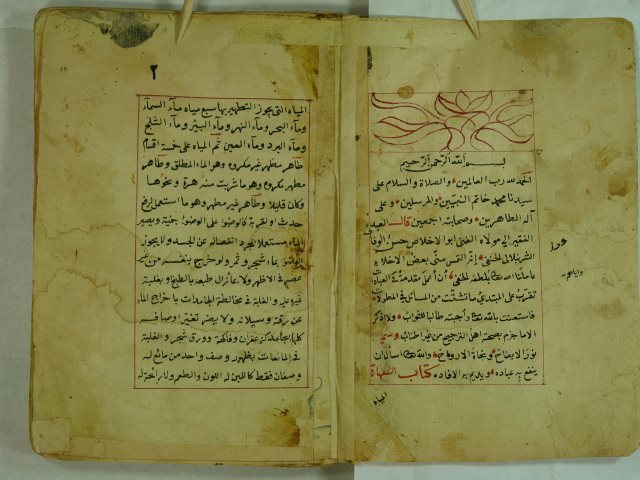 بسم الله الرحمن الرحيم
الحمد لله رب العالمين والصلاة والسلام على
سيدنا محمد خاتم النبيين والمرسلين وعلى
آله الطاهرين وصحابته اجمعين قال العبد
الفقير الى مولاه الغنى ابو الاخلاص حسن الوفا
الشرنبلالى الحنفى انه التمس منى بعض الاخلاء
عاملنا الله بلطفه الخفى ان أعمل مقدمة فى العبادات
تقرب على المبتدى ما تشتت من المسائل فى المطولات
فاستعنت بالله واجبته طالبا للثواب ولا اذكر
الا ما جزم بصحته اهل الترجيح من غير اطناب وسميته
نور الايضاح ونجاة الارواح والله اسأل ان
ينفع به عباده ويديم به الافاده كتاب الطهارة
المياه
٢
المياه التى يجوز التطهير بها سبع مياه ماء السماء
وماء البحر وماء النهر وماء البئر وماء الثلج
وماء البرد وماء العين ثم المياه على خمسة اقسام
طاهر مطهر غير مكروه وهو الماء المطلق وطاهر
مطهر مكروه وهو ما شربت منه هرة ونحوها
وكان قليلا وطاهر غير مطهر وهو ما استعمل لرفع
حدث او لقربة كالوضوء على الوضوء بنية ويصير
الماء مستعملا بمجرد انفصاله عن الجسد ولا يجوز
الوضوء بماء شجر وثمر ولو خرج بنفسه من غير
عصر فى الاظهر ولا بماء زال طبعه بالطبخ او بغلبة
غيره عليه والغلبة فى مخالطة الجامدات باخراج الماء
عن رقته وسيلانه ولا يضر تغير اوصافه
كلها بجامد كزعفران وفاكهة وورق شجر والغلبة
فى المائعات بظهور وصف واحد من مائع له
وصفان فقط كاللبن له اللون والطعم ولا رائحة له